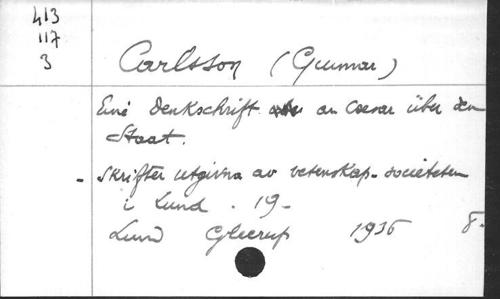 413
117
3
Carlsson (Gunnar)
Eine Denkschrift an Caesar über den
Staat.
- Skrifter utgivna av vetenskap-societeten
i Lund . 19-
Lund Gleerup 1936 8.